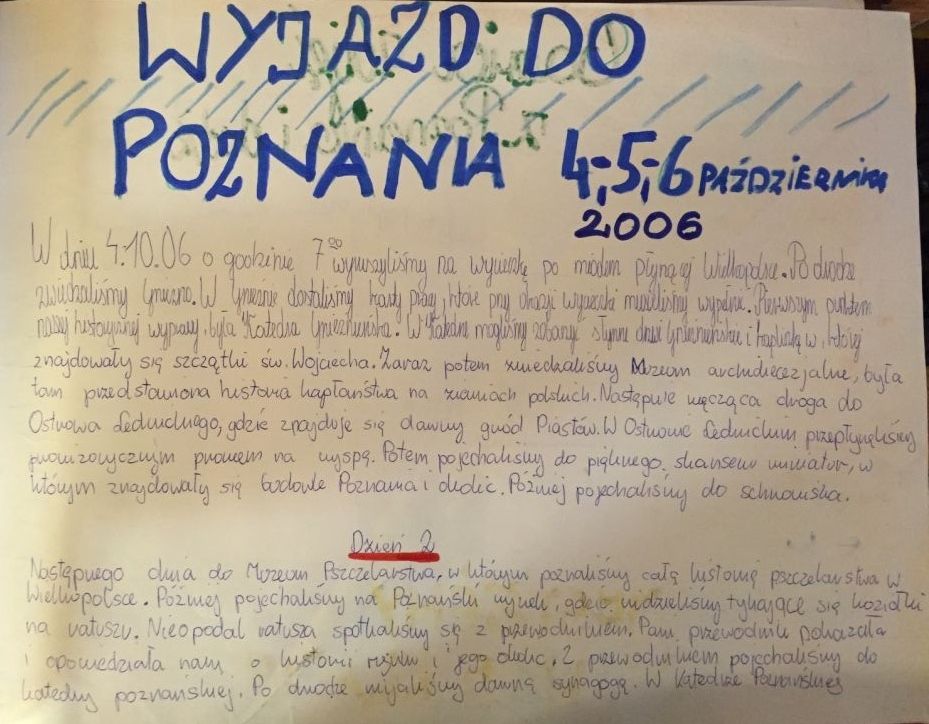 WYJAZD DO
POZNANIA 4,5,6 PAŹDZIERNIKA
2006
W dniu 4.10.06 o godzinie 7⁰⁰ wyruszyliśmy na wycieczkę po miodem płynącej Wielkopolsce. Po drodze
zwiedzaliśmy Gniezno. W Gnieźnie dostaliśmy karty pracy, które przy okazji wycieczki musieliśmy wypełnić. Pierwszym punktem
naszej historycznej wyprawy, była Katedra Gnieźnieńska. W Katedrze mogliśmy zobaczyć słynne drzwi Gnieźnieńskie i kapliczkę w, której
znajdowały się szczątki św. Wojciecha. Zaraz potem zwiedzaliśmy Muzeum archidiecezjalne, była
tam przedstawiona historia kapłaństwa na ziemiach polskich. Następnie męcząca droga do
Ostrowa Lednickiego, gdzie znajduje się dawny gród Piastów. W Ostrowie Lednickim przepłynęliśmy
prowizorycznym promem na wyspę. Potem pojechaliśmy do pięknego skansenu miniatur, w
którym znajdowały się budowle Poznania i okolic. Później pojechaliśmy do schroniska.
Dzień 2
Następnego dnia do Muzeum Pszczelarstwa, w którym poznaliśmy całą historię pszczelarstwa w
Wielkopolsce. Później pojechaliśmy na Poznański rynek, gdzie widzieliśmy tykające się koziołki
na ratuszu. Nieopodal ratusza spotkaliśmy się z przewodnikiem. Pani przewodnik pokazała
i opowiedziała nam o historii rynku i jego okolic. Z przewodnikiem pojechaliśmy do
katedry poznańskiej. Po drodze mijaliśmy dawną synagogę. W Katedrze Poznańskiej